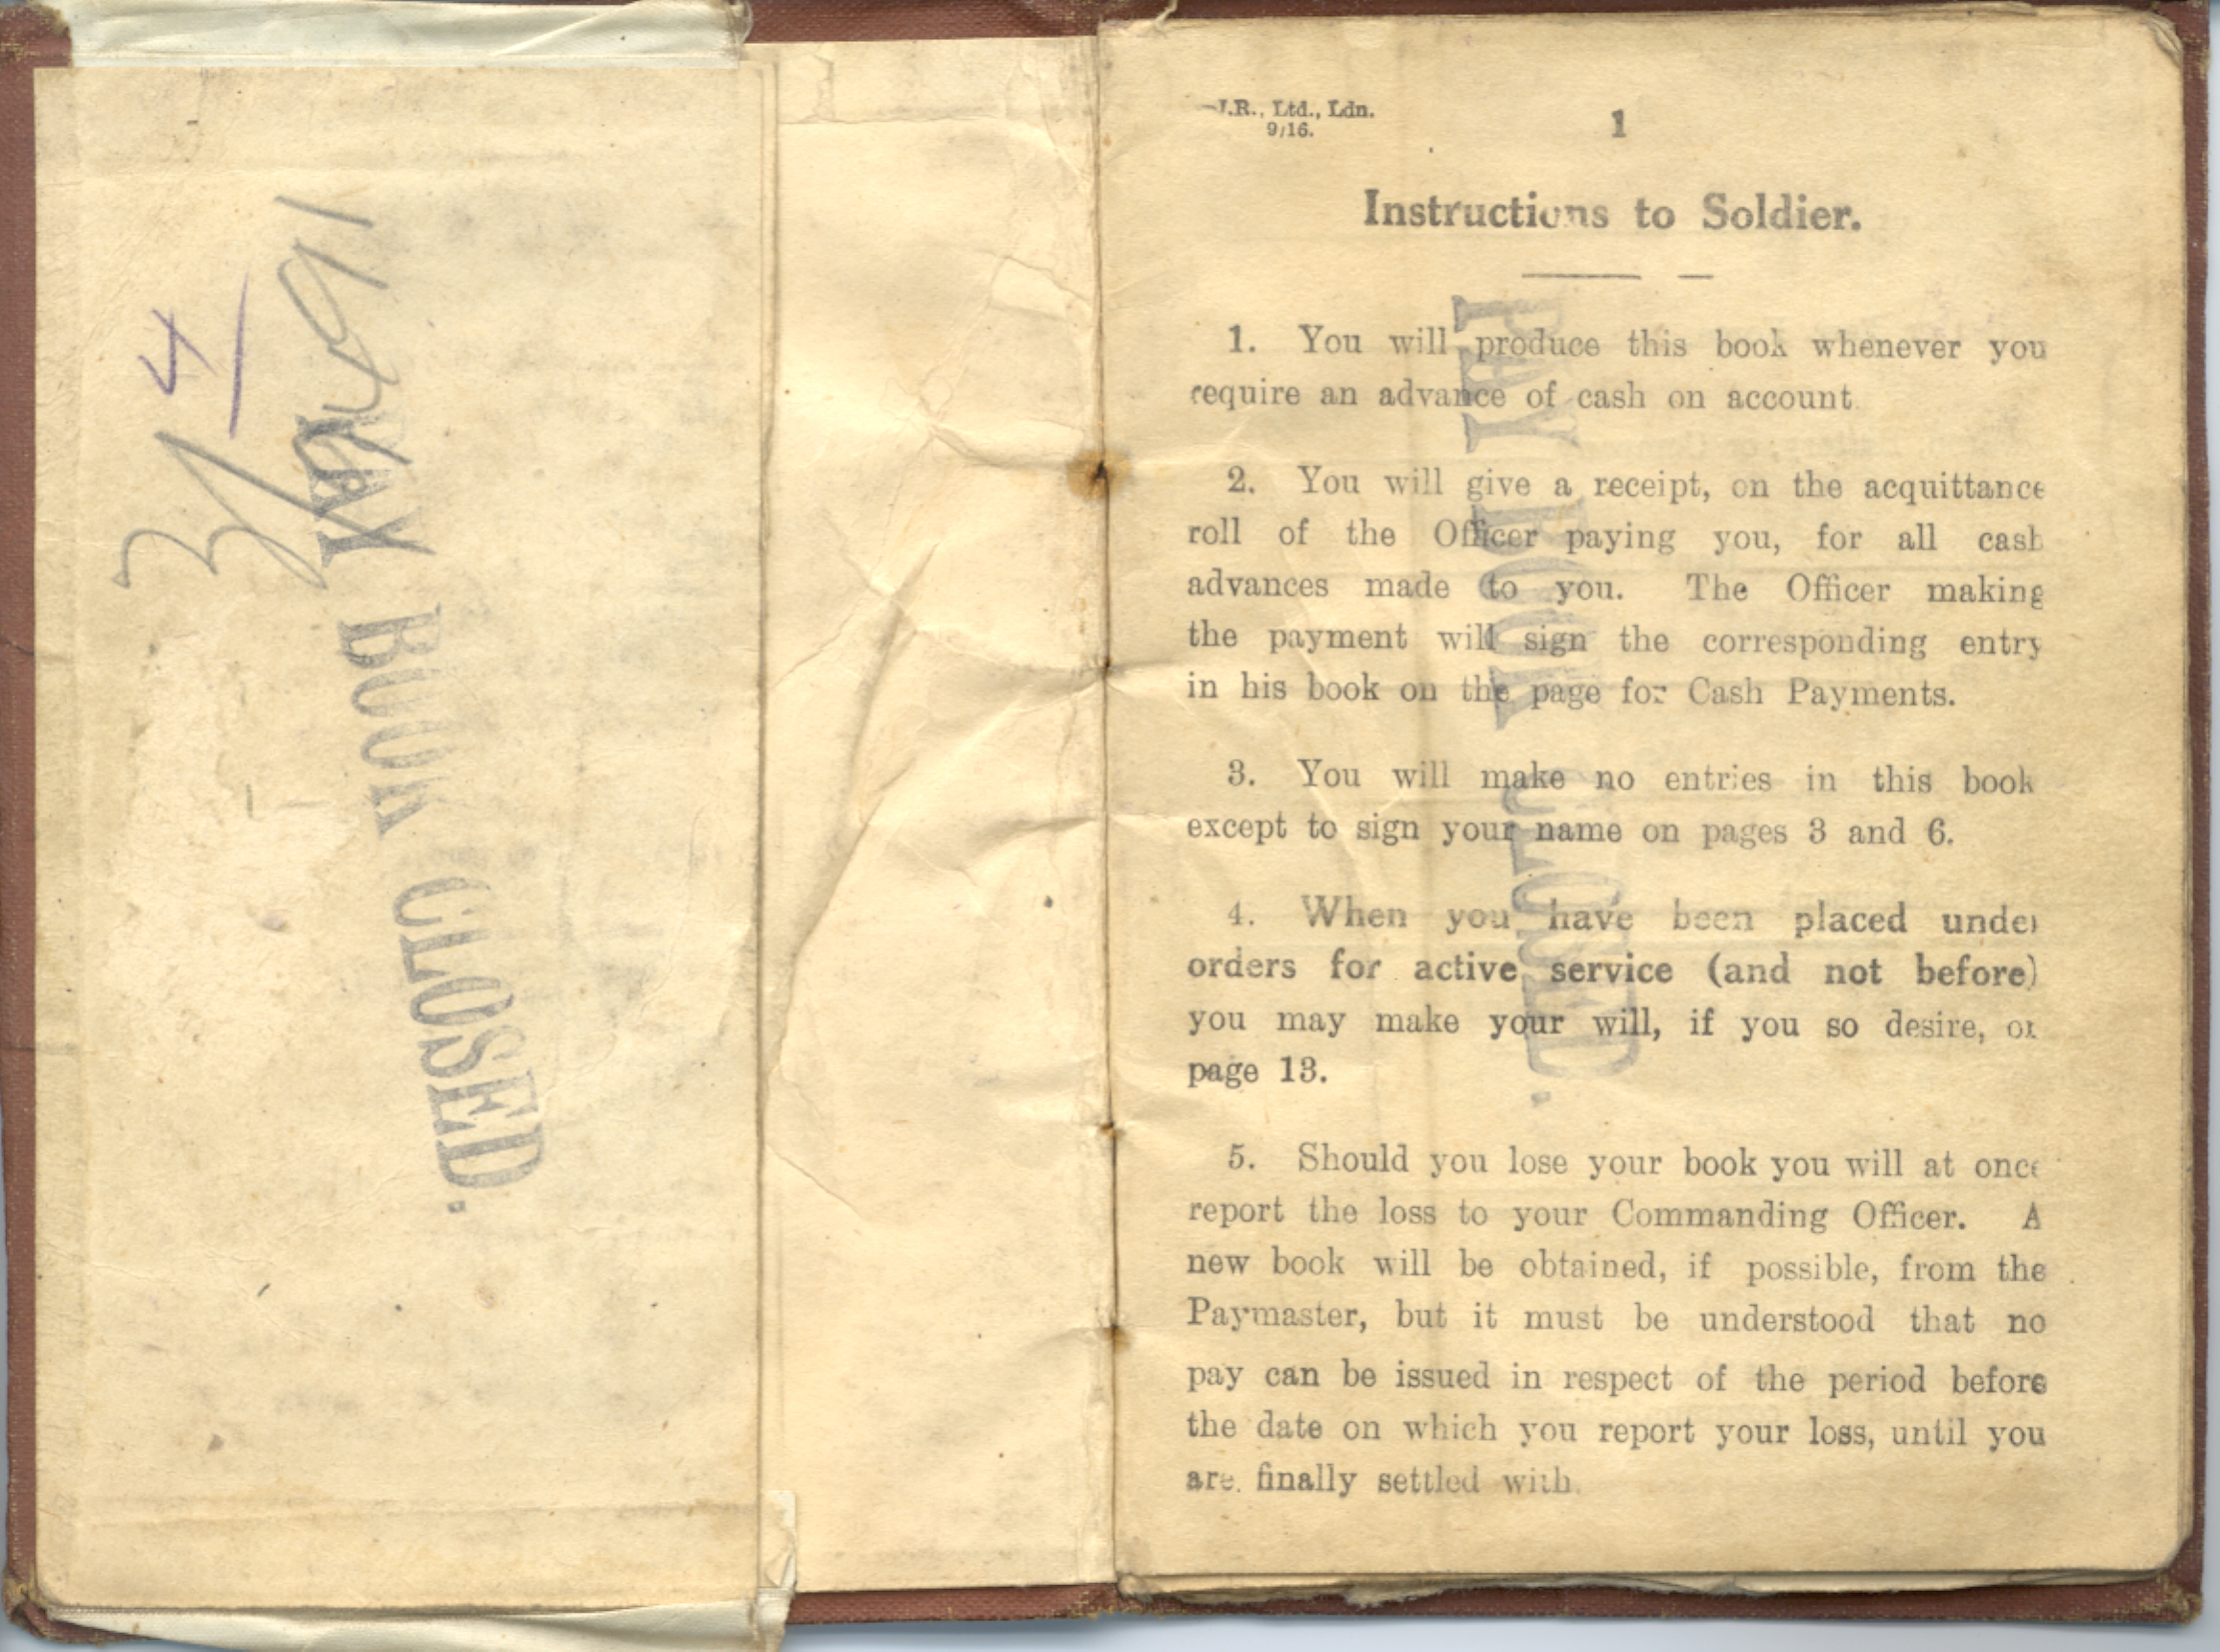 4/
PAY BOOK CLOSED.
J.R., Ltd., Ldn.
9/16.
1
Instructions to Soldier.
PAY BOOK CLOSED.
1. You will produce this book whenever you
require an advance of cash on account
2. You will give a receipt, on the acquittance
roll of the Officer paying you, for all cash
advances made to you. The Officer making
the payment will sign the corresponding entry
in his book on the page for Cash Payments.
3. You will make no entries in this book
except to sign your name on pages 3 and 6.
4. When you have been placed under
orders for active service (and not before)
you may make your will, if you so desire, on
page 13.
5. Should you lose your book you will at once
report the loss to your Commanding Officer. A
new book will be obtained, if possible, from the
Paymaster, but it must be understood that no
pay can be issued in respect of the period before
the date on which you report your loss, until you
are finally settled with.